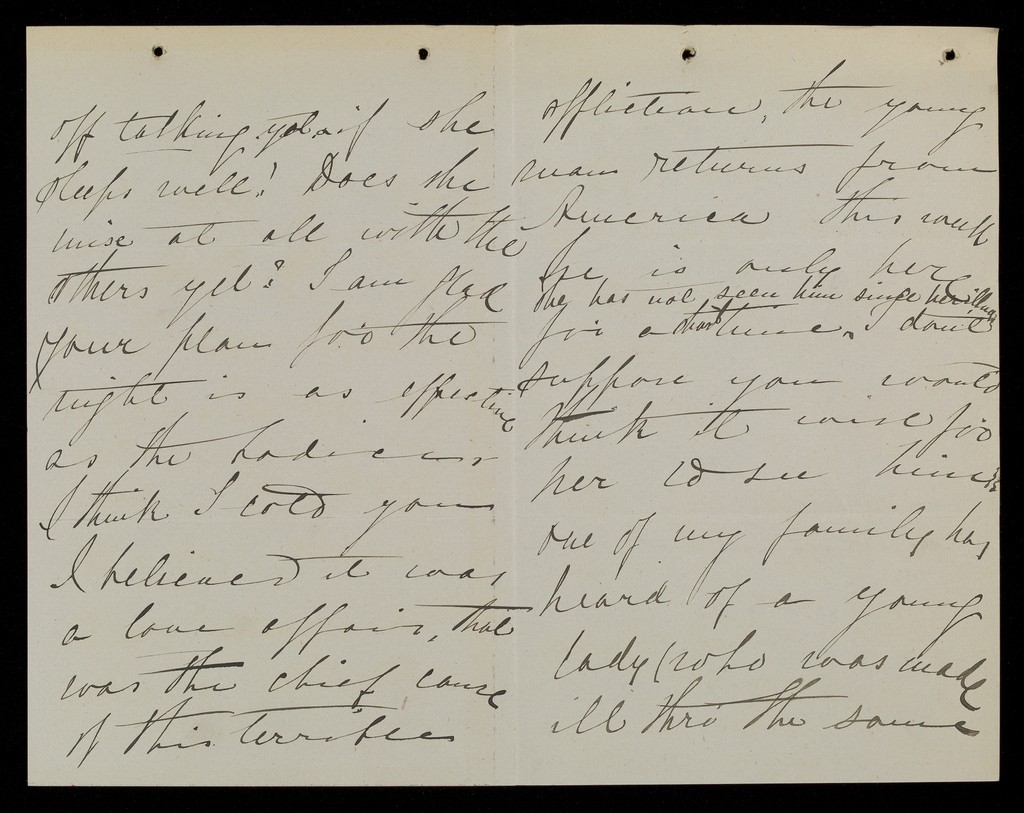 off talking yet. if she
sleeps well? Does she
mix at all with the
others yet? I am glad
your plan for the
night is as effective
as the
I think I told you
I believed it was
a love affair, that
was the chief cause
of this terrible
affliction, the young
man returns from
America this week
he is only here
She has not seen him since her illness
for a short time. I don't
suppose you would
think it wise for
her to see him?
one of my family has
heard of a young
lady (who was made
ill thro the same